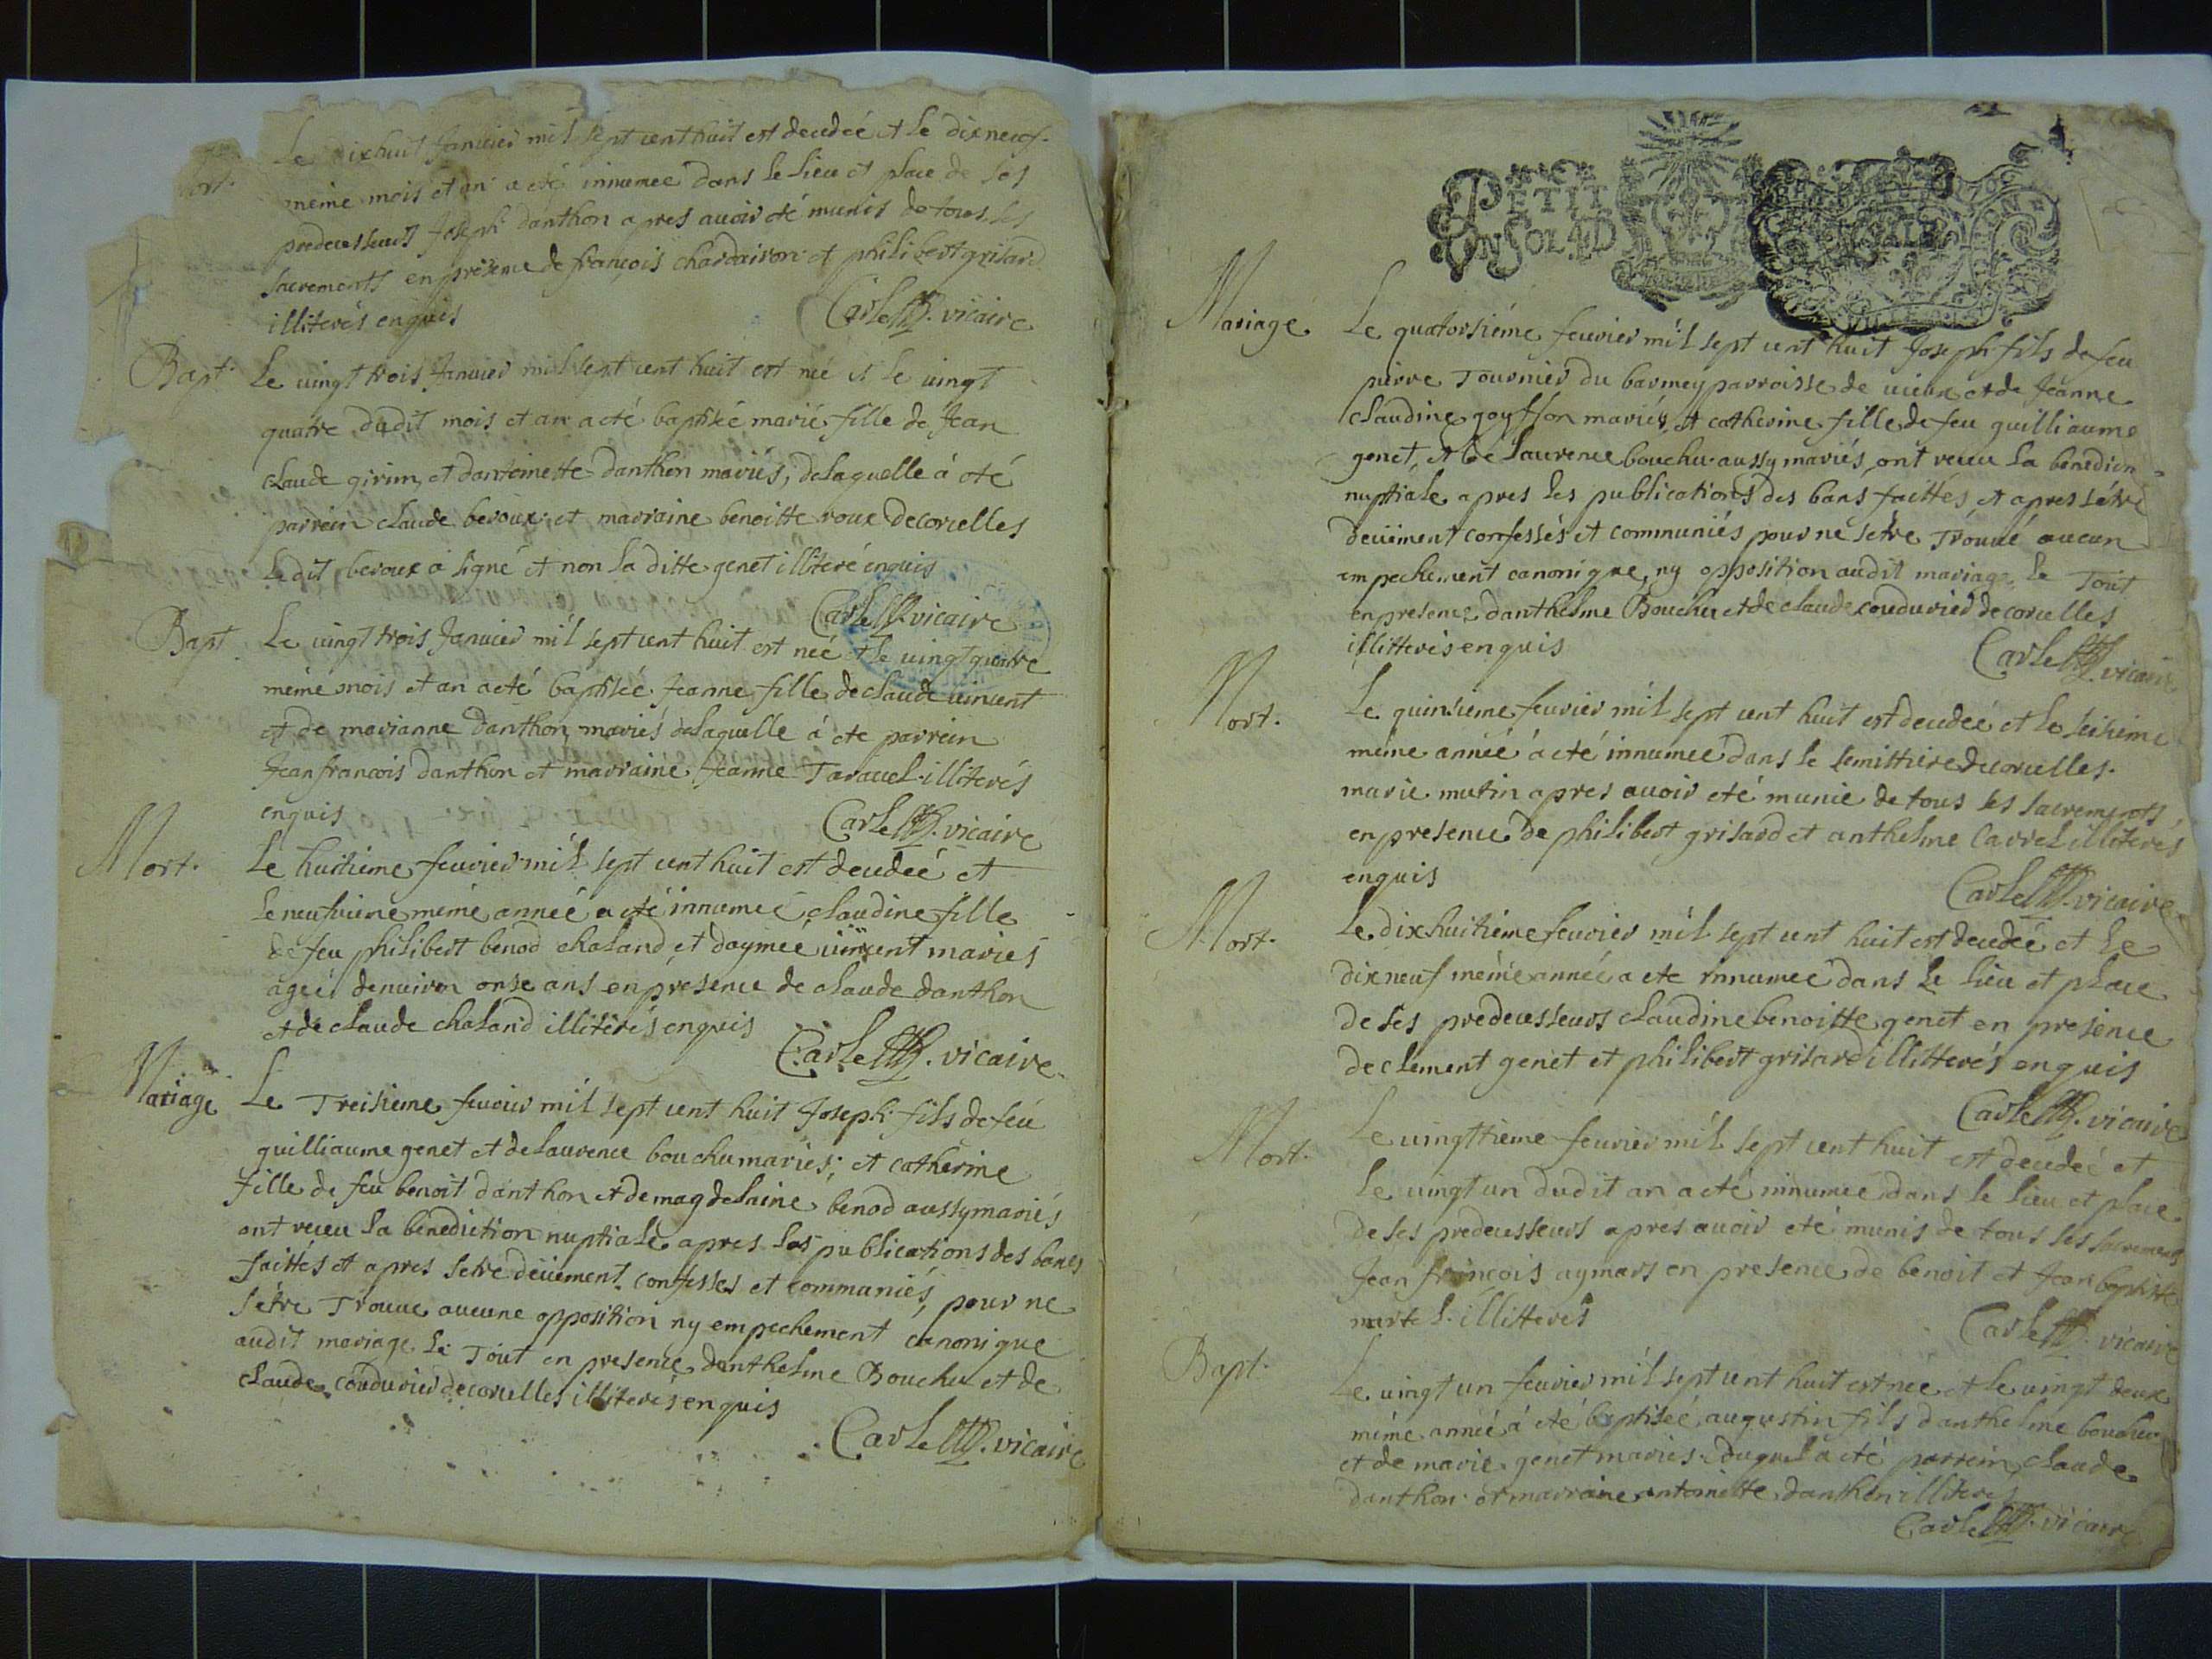 Mort.
Le dixhuit Janvier mil sept cent huit est decedeé et le dixneuf
méme mois et an a eté innumee dans le lieu et place de ses
predecesseurs Joseph danthon apres avoir eté munis de tous les
sacrements en présence de françois chardairon et philibert grisard
illiterés enquis
Carle vicaire
Bapt.
Le vingt trois Janvier mil sept cent huit est neé et le vingt
quatre dudit mois et an a eté baptisée marie fille de Jean
claude girin, et dantoinette danthon mariés, de laquelle à eté
parrein claude beroux et marraine benoitte roux de corcelles
Ledit beroux à signé et non la ditte genet illiteré enquis
Carle vicaire
Bapt.
Le vingt trois Janvier mil sept cent huit est neé et le vingt quatre
méme mois et an a eté baptisée Jeanne fille de claude vincent
et de marianne danthon mariés de laquelle à ete parrein
Jean francois danthon et marraine Jeanne Taravel illiterés
enquis
Carle vicaire
Mort.
Le huitieme fevrier mil sept cent huit est decedeé et
le neufvieme méme anneé a eté innumeé claudine fille
de feu philibert benod chaland et daymeé vincent mariés
ageé denviron onse ans en présence de claude danthon
et de claude chaland illiterés enquis
Carle vicaire
Mariage
Le Treisieme fevrier mil sept cent huit Joseph fils de feu
guilliaume genet et de Laurence bouchu mariés; et catherine
fille de feu benoit danthon et de magdelaine benod aussy mariés
ont receu la benediction nuptiale apres les publications des bancs
faittés et apres setre deüement confesses et communiés, pour ne
sétre Trouve aucune opposition ny empechement canonique
audit mariage le Tout en presence danthelme Bouchu et de
claude couduried de corcelles illiterés enquis
Carle vicaire
PETIT
EN SOL 4 D
Mariage
Le quatorsiéme fevrier mil sept cent huit Joseph fils de feu
pierre Tournier du barmey parroisse de vieux et de Jeanne
claudine goyffon mariés, et catherine fille de feu guilliaume
genet, et de Laurence bouchu aussy mariés ont receu la benedicn
nuptiale apres les publications des bans faittés et apres sétre
deüement confessés et communiés pour ne setre Trouvé aucun
empechement canonique, ny opposition audit mariage le Tout
en presence danthelme Bouchu et de claude couduried de corcelles
illitterés enquis
Carle vicaire
Mort.
Le quinsieme fevrier mil sept cent huit est decedeé et le seisieme
méme anneé à eté innumee dans le semittiere de corcelles
marie mutin apres avoir eté munie de tous les sacrements
en presence de philibert grisard et anthelme Carrel illiterés
enquis
Carle vicaire
Mort.
Le dixhuitiéme fevrier mil sept cent huit est decedeé et le
dixneuf méme anneé a ete innumeé dans le lieu et place
de ses predecesseurs claudine benoitte genet en presence
de clement genet et philibert grisard illitterés enquis
Carle vicaire
Mort.
Le vingttieme fevrier mil sept cent huit est decedeé et
le vingt un dudit an a eté innumeé dans le lieu et place
de ses predecesseurs apres avoir eté munis de tous les sacrements
Jean françois aymars en presence de benoit et Jean baptiste
martel illitterés
Carle vicaire
Bapt.
Le vingt un fevrier mil sept cent huit est neé et le vingt deux
méme anneé à eté baptiseé augustin fils danthelme bouchu
et de marie genet mariés duquel a eté parrein claude
danthon et marraine antoinette danthon illiterés
Carle vicaire